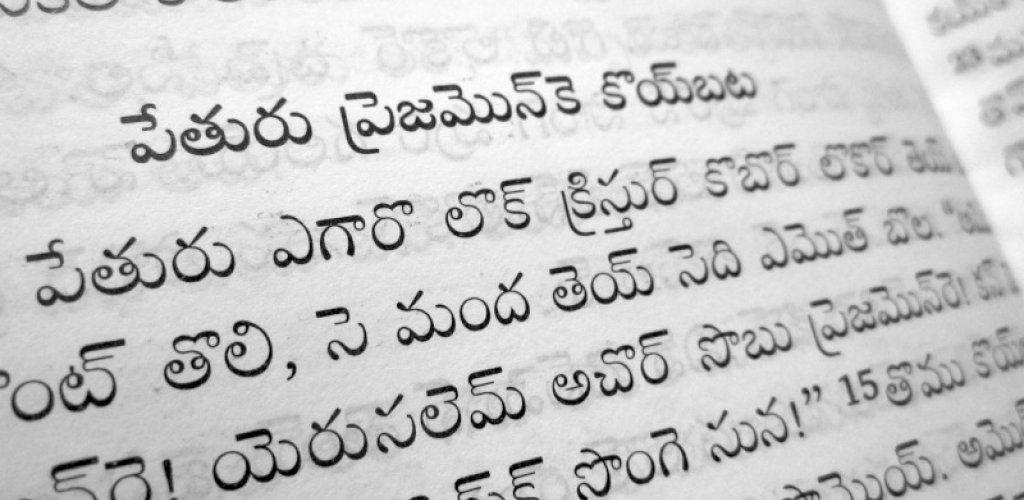 పేతురు ప్రెజమొన్‌కె కొయ్‌బట
పేతురు ఎగారొ లొక్ క్రిస్తుర్ కొబొర్ లొకొర్
తొలి, సె మంద తెయ్ సెది ఎమొత్ బొల.
యెరుసలెమ్ అచొర్ సొబు ప్రెజమొన్‌రె!
సొంగె సున!” 15 తొము